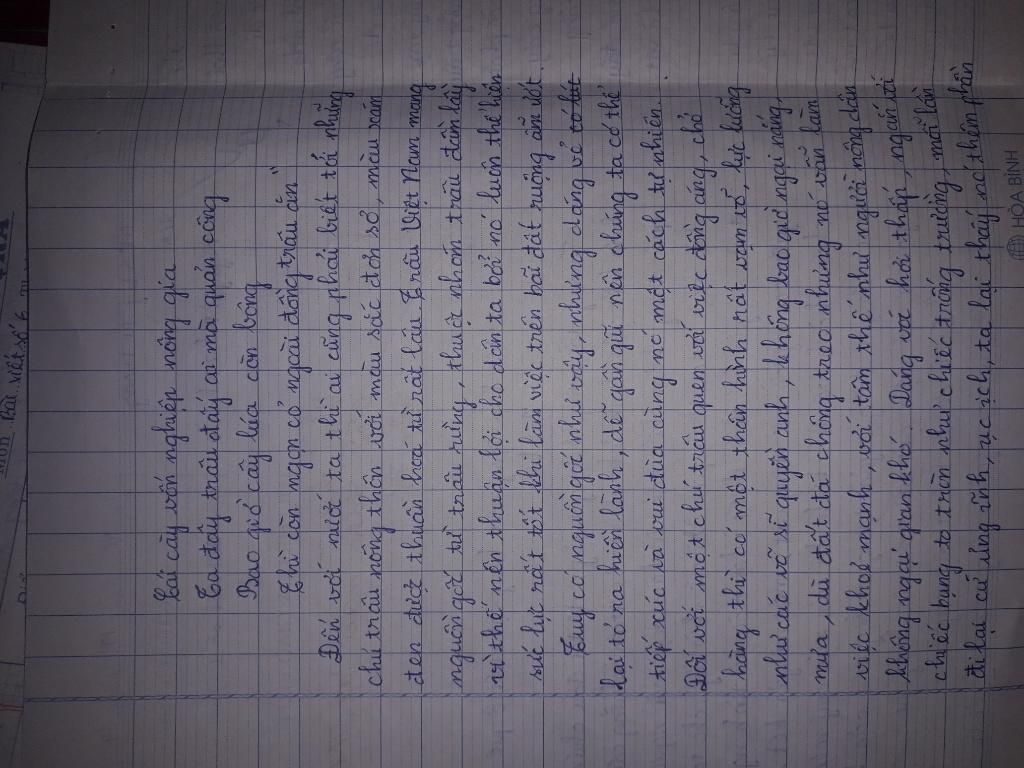 Môn Bài viết số 6
Cái cày vốn nghiệp nông gia
Ta đây trâu đấy ai mà quản công
Bao giờ cây lúa còn bông
Thì còn ngọn cỏ ngoài đồng trâu ăn"
Đến với nước ta thì ai cũng phải biết tới những
chú trâu nông thôn với màu sắc đơn sơ, màu xám
đen được thuần hoá từ rất lâu. Trâu Việt Nam mang
nguồn gốc từ trâu rừng, thuộc nhóm trâu đầm lầy
vì thế nên thuận lợi cho dân ta bởi nó luôn thể hiện
sức lực rất tốt khi làm việc trên bãi đất ruộng ẩm ướt.
Tuy có nguồn gốc như vậy, nhưng dáng vẻ
lại tỏ ra hiền lành, dễ gần gũi nên chúng ta có thể
tiếp xúc và vui đùa cùng nó một cách tự nhiên.
Đối với một chú trâu quen với việc đồng áng, chở
hàng thì có một thân hình rất vạm vỡ, lực lưỡng
như các võ sĩ quyền anh, không bao giờ ngại nắng
mưa, dù đất đá chông treo nhưng nó vẫn làm
việc khoẻ mạnh, với tâm thế như người nông dân
không ngại gian khó. Dáng vá hơi thấp, ngắn với
chiếc bụng to tròn như chiếc trống trường, mỗi lần
đi lại cứ ủng ỉnh, ục ịch, ta lại thấy nó thêm phần
HÒA BÌNH